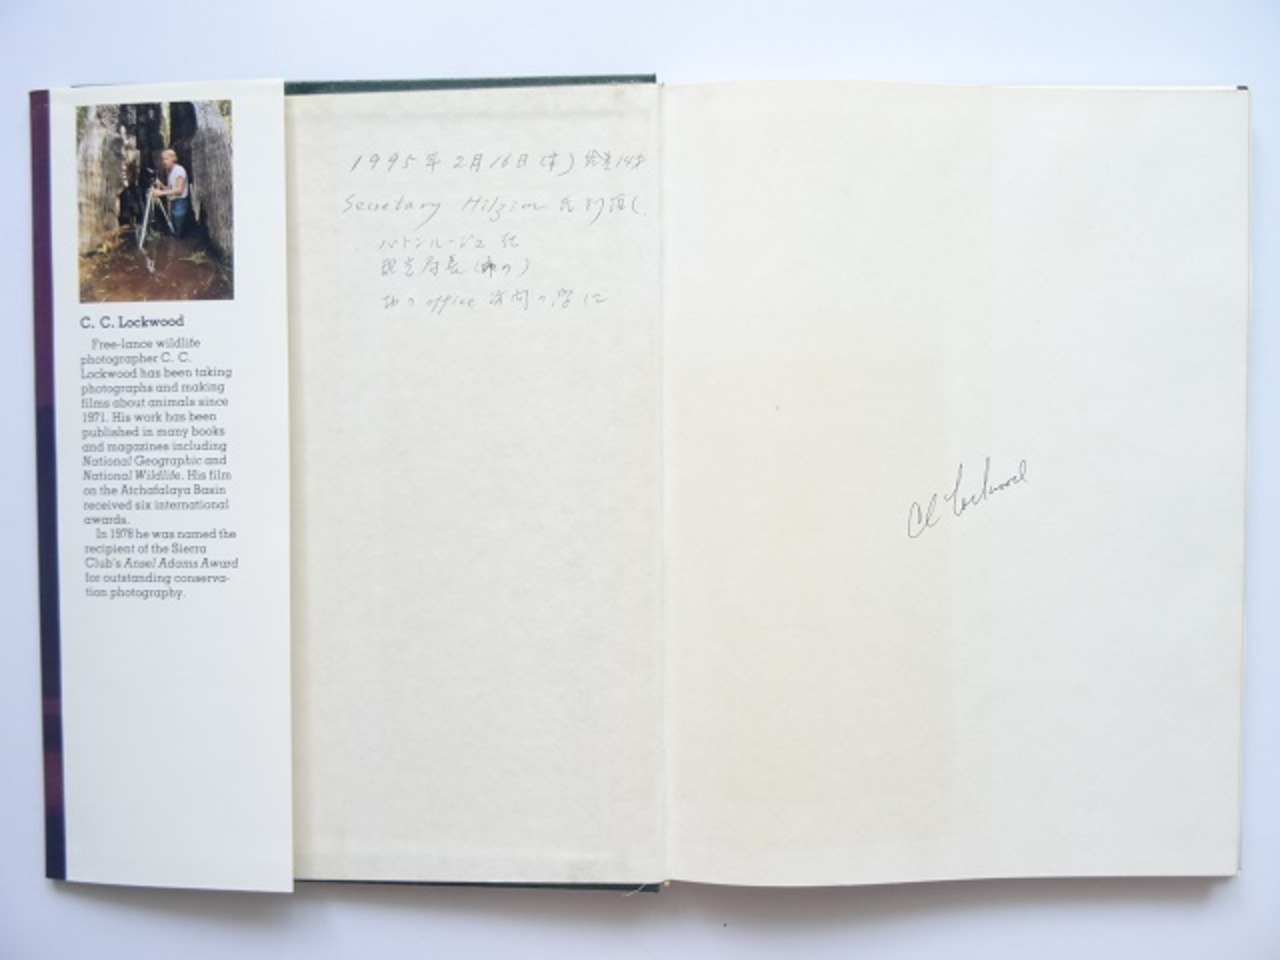 C. C. Lockwood
Free-lance wildlife
photographer C. C.
Lockwood has been taking
photographs and making
films about animals since
1971. His work has been
published in many books
and magazines including
National Geographic and
National Wildlife. His film
on the Atchafalaya Basin
received six international
awards.
In 1978 he was named the
recipient of the Sierra
Club's Ansel Adams Award
for outstanding conserva-
tion photography.
1995年2月16日(木)
Secretary 氏
バトンルージュ
office 訪問の
CC Lockwood